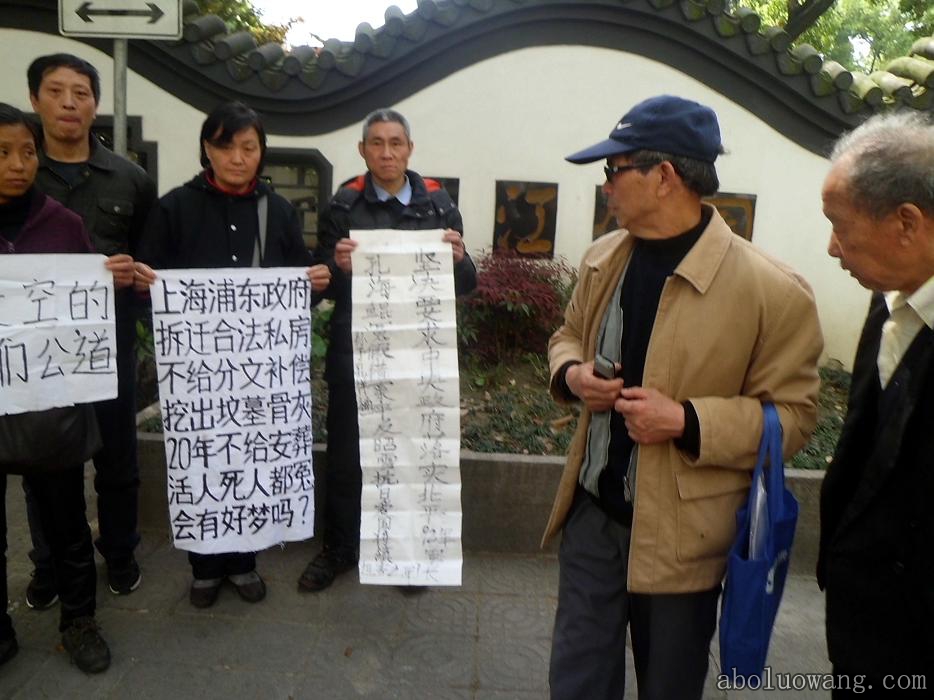 空的
们公道
上海浦东政府
拆迁合法私房
不给分文补偿
挖出坟墓骨灰
20年不给安葬
活人死人都冤
会有好梦吗?
坚决要求中央政府落实北平
平反昭雪抗日爱国将领
aboluowang.com